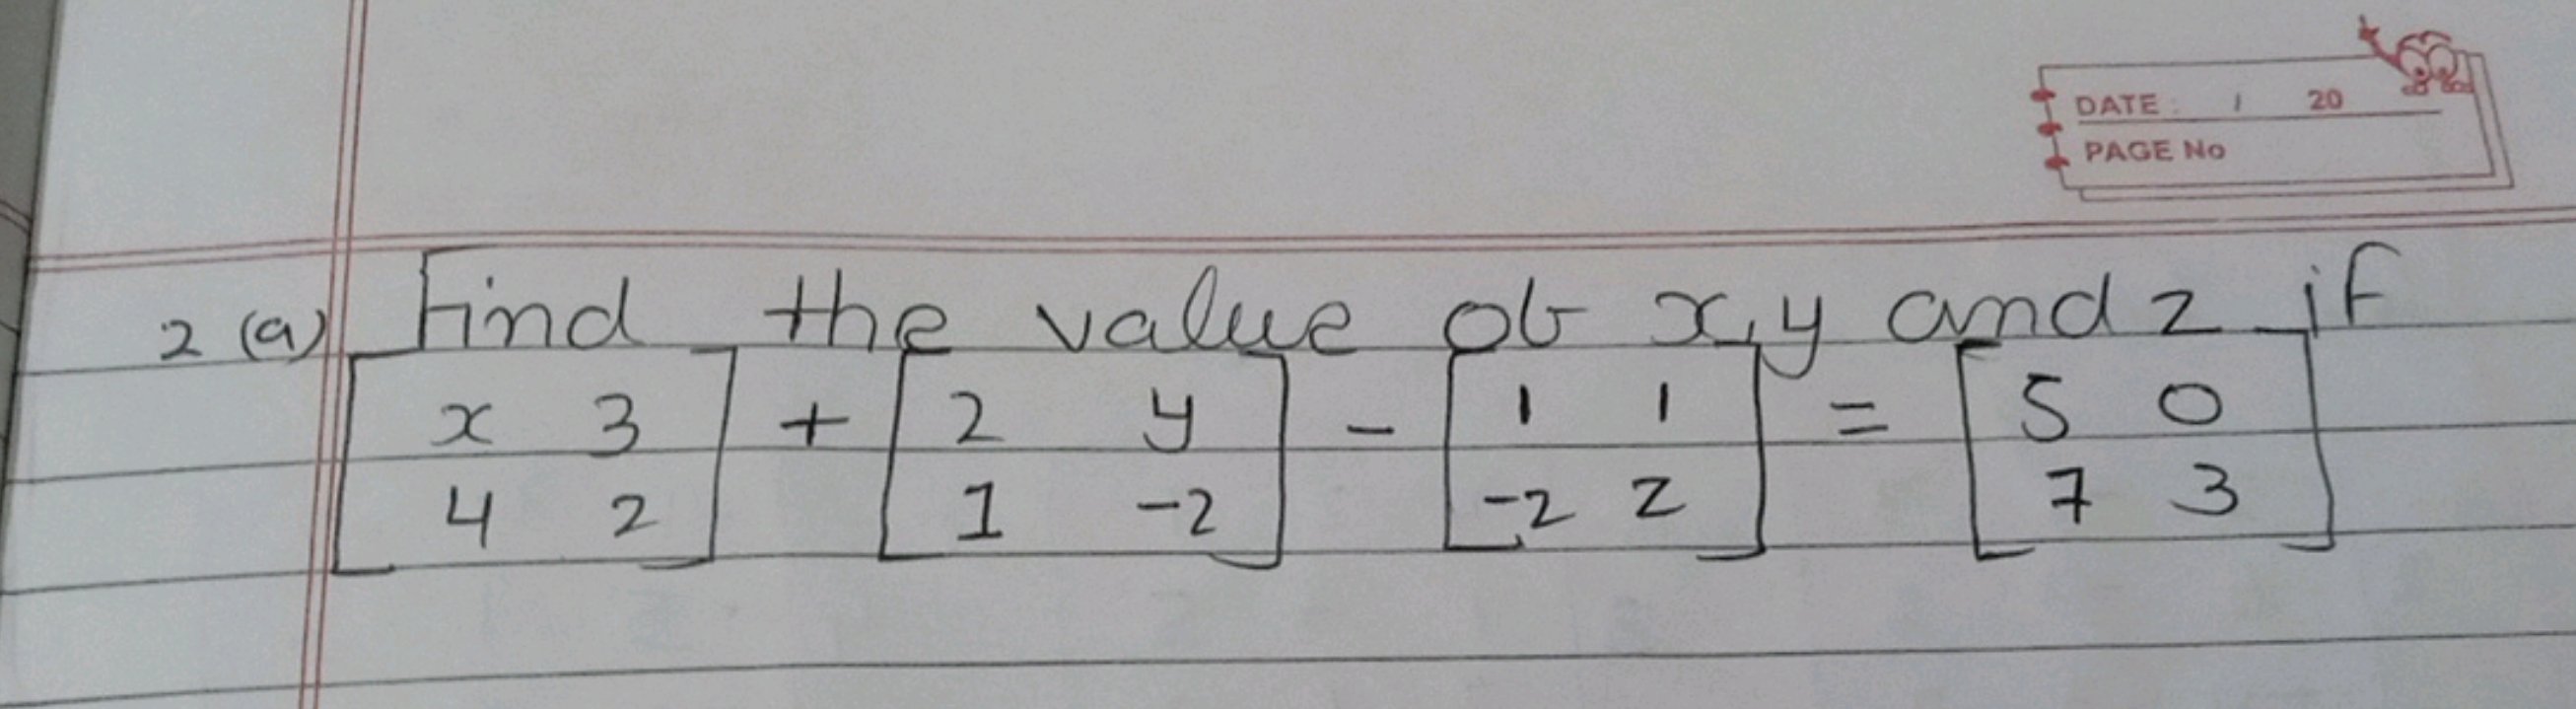 DATE: / 20
PAGE No
2 (a) Find the value of x, y and z if
[x 3] + [2 y] - [1 1] = [5 0]
[4 2] [1 -2] [-2 z] [7 3]